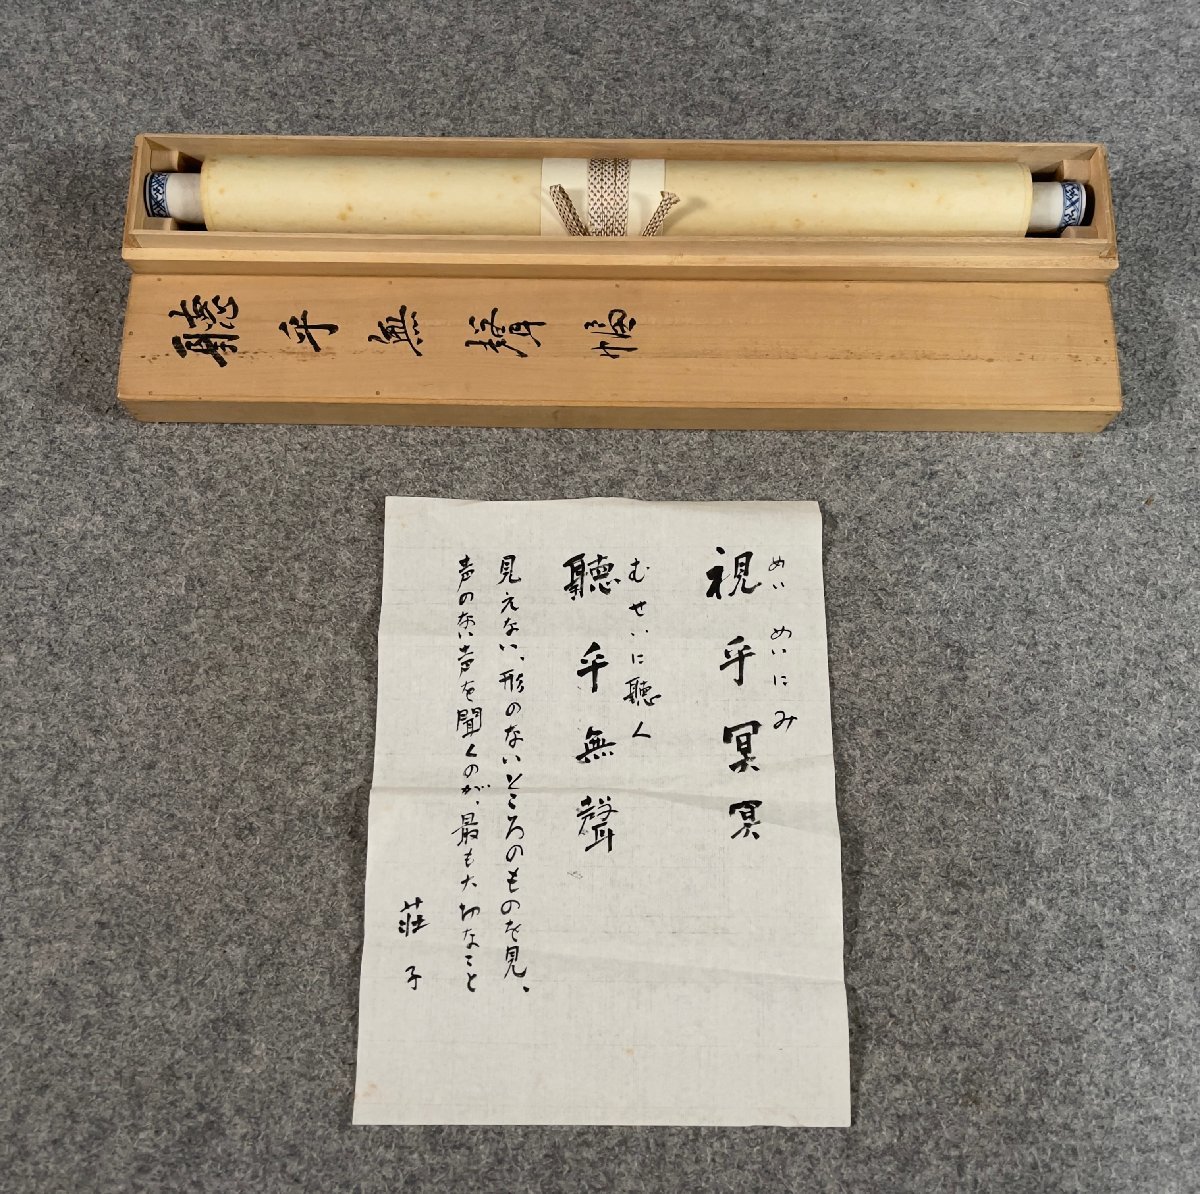 聴乎無聲幅
めいめいにみ
視乎冥冥
むせいに聴く
聽乎無聲
見えない、形のないところのものを見、
声のない声を聞くのが、最も大切なこと
荘子